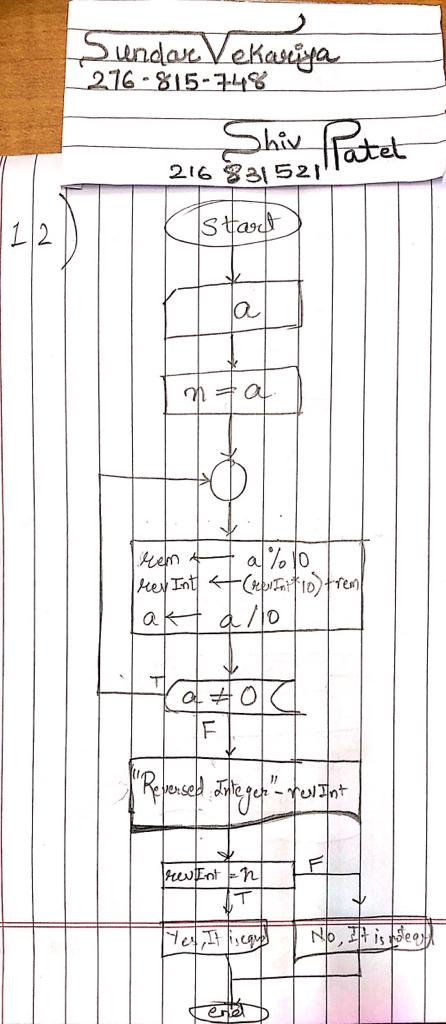 Sundar Vekariya
276-815-748
Shiv Patel
216 831521
12)
Start
a
n = a
rem ← a % 10
revInt ← (revInt*10)+rem
a ← a / 10
T
a ≠ 0
F
"Reversed Integer"-revInt
revInt = n
F
T
Yes, It is
No, It is
end